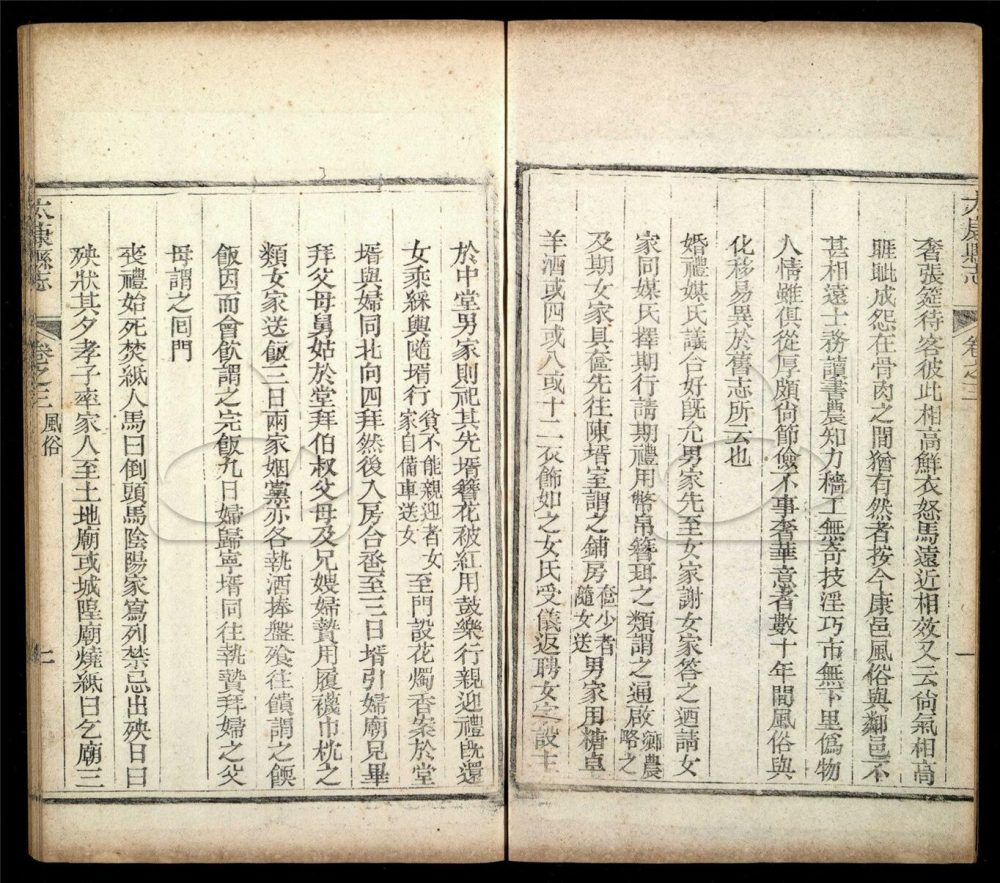 太康縣志 卷之三 一
奢張筵待客彼此相高鮮衣怒馬遠近相效又云尙氣相高
睚眦成怨在骨肉之間猶有然者按今康邑風俗與鄰邑不
甚相遠士務讀書農知力穡工無奇技淫巧市無下里僞物
人情雖俱從厚頗尙節儉不事奢華意者數十年間風俗與
化移易異於舊志所云也
婚禮媒氏議合好旣允男家先至女家謝女家答之迺請女
家同媒氏擇期行請期禮用幣帛簪珥之類謂之通啟鄉農略之
及期女家具奩先往陳壻室謂之鋪房奩少者隨女送男家用糖桌
羊酒或四或八或十二衣飾如之女氏受儀返聘女家設主
於中堂男家則祀其先壻簪花被紅用鼓樂行親迎禮旣還
女乘綵輿隨壻行貧不能親迎者女家自備車送女至門設花燭香案於堂
壻與婦同北向四拜然後入房合巹至三日壻引婦廟見畢
拜父母舅姑於堂拜伯叔父母及兄嫂婦贄用履襪巾枕之
類女家送飯三日兩家姻黨亦各執酒捧盤飱往饋謂之餪
飯因而會飮謂之完飯九日婦歸寧壻同往執贄拜婦之父
母謂之囘門
喪禮始死焚紙人馬曰倒頭馬陰陽家寫列禁忌出殃日曰
殃狀其夕孝子率家人至土地廟或城隍廟燒紙曰乞廟三
太康縣志 卷之三 風俗 二